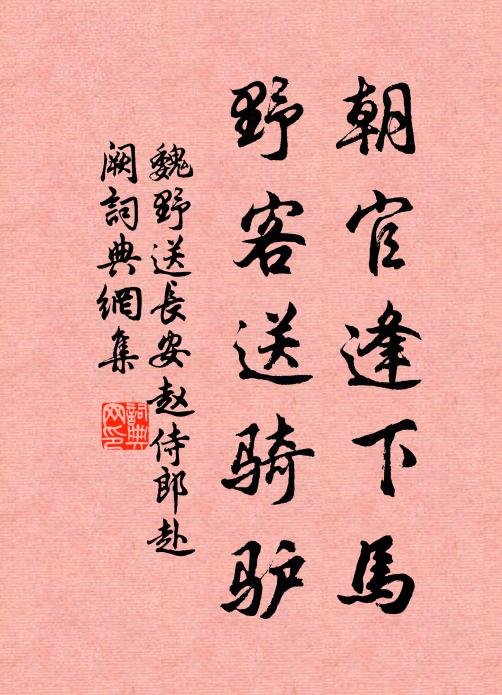 朝官逢下馬
野客送骑驴
魏野送長安赵侍郎赴
阙詞典網集
詞典
网印